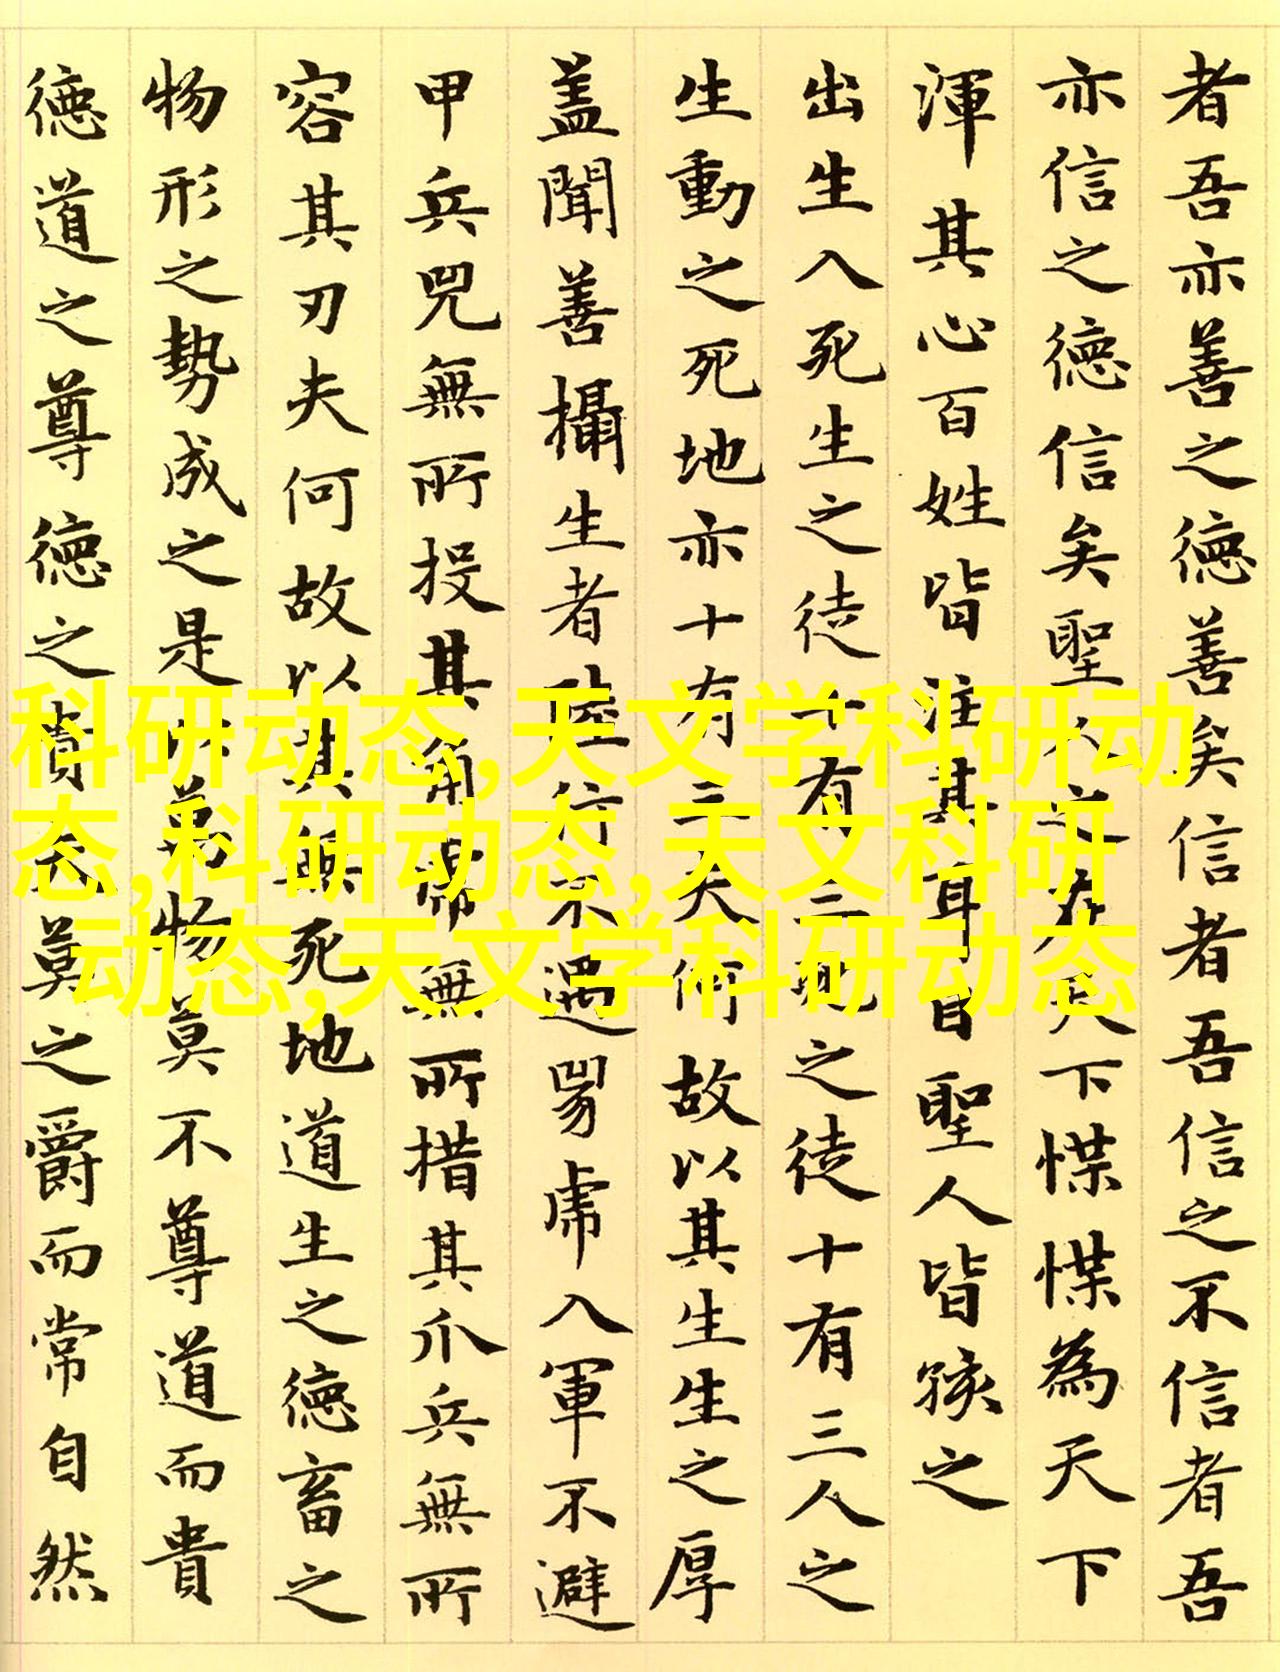 者吾亦善之德善矣信者吾信之不信者吾
亦信之德信矣聖人之在天下惵惵為天下
渾其心百姓皆注其耳目聖人皆孩之
出生入死生之徒十有三死之徒十有三人之
生動之死地亦十有三夫何故以其生生之厚
蓋聞善攝生者陸行不遇兕虎入軍不避
甲兵兕無所投其角常無所措其爪兵無所
容其刃夫何故以其無死地道生之德畜之
物形之勢成之是以萬物莫不尊道而貴
德道之尊德之貴夫莫之爵而常自然
科研动态,天文学科研动
态,科研动态,天文科研
动态,天文学科研动态